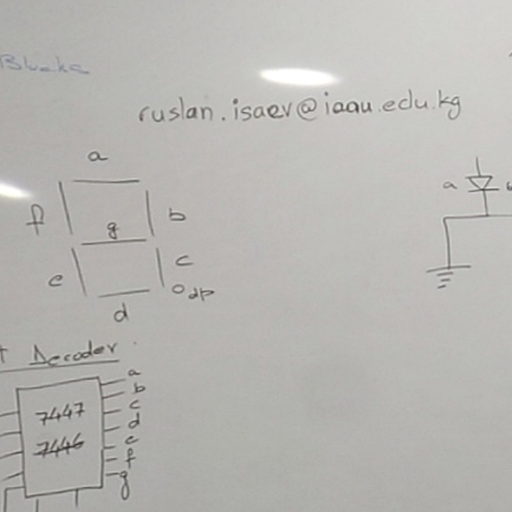 Blocks
ruslan.isaev@iaau.edu.kg
a
f
g
b
e
c
d
dp
a
Decoder.
7447
7446
a
b
c
d
e
f
g